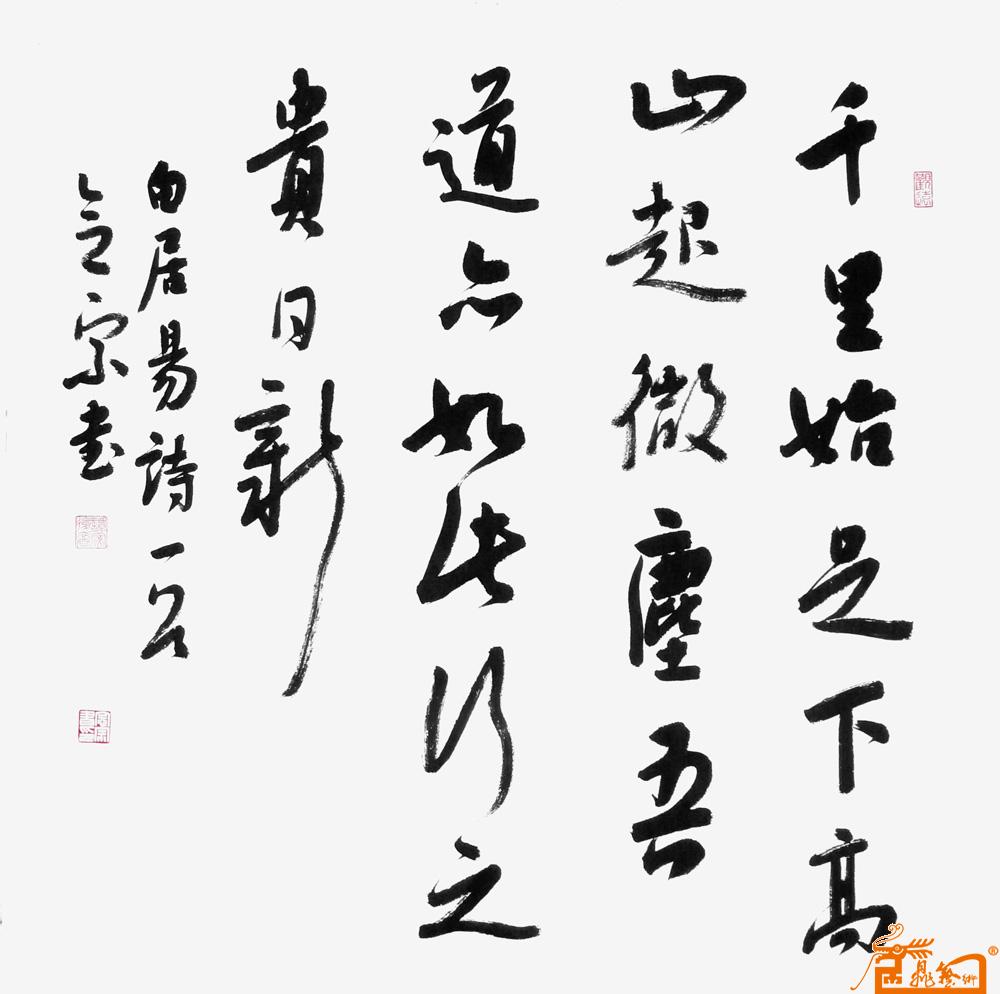 千里始足下高
山起微塵吾
道亦如此行之
貴日新
白居易詩一首
宗書